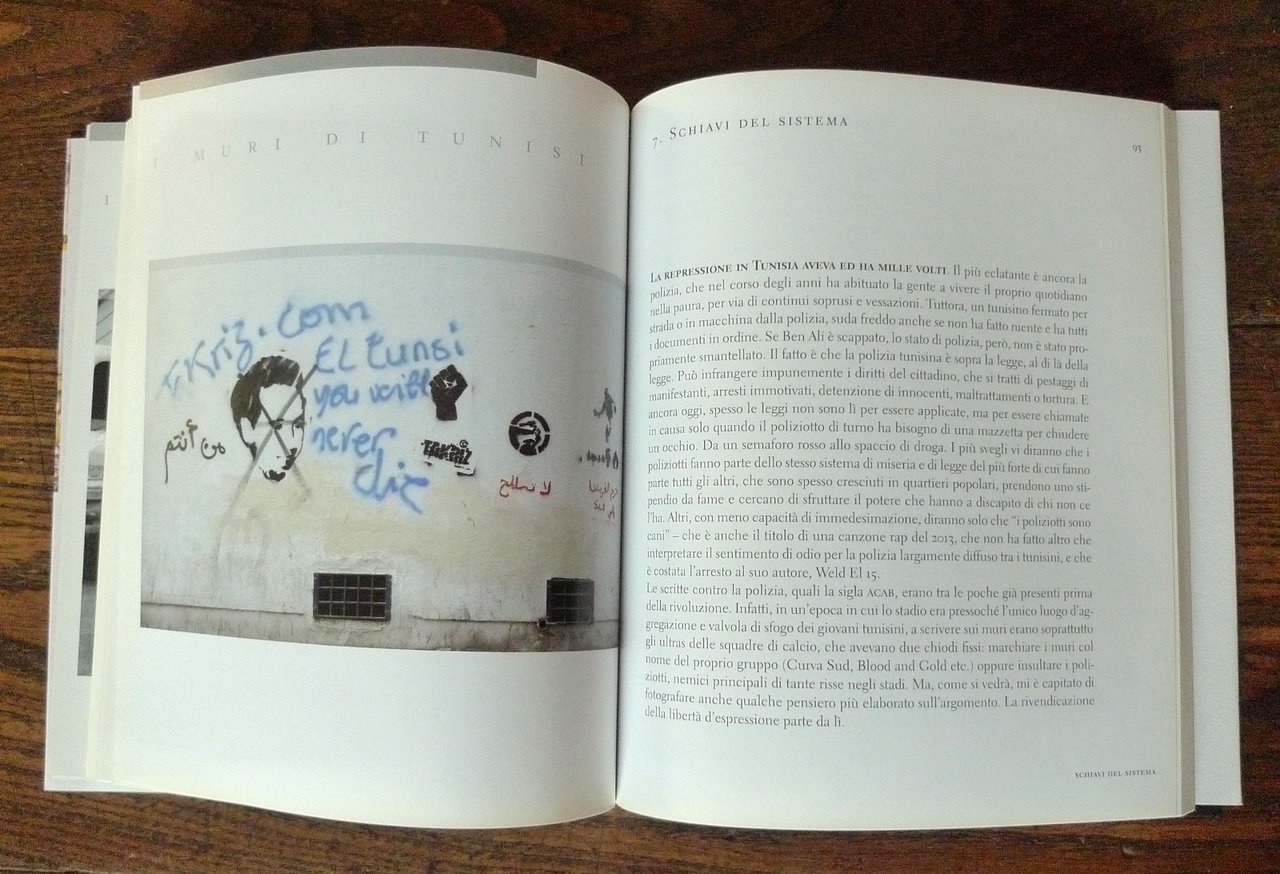 I MURI DI TUNISI
Kriz.com
El tunsi
you will
never
من أنتم
TAKRIZ
لا نصالح
7. Schiavi del sistema
93
La repressione in Tunisia aveva ed ha mille volti. Il più eclatante è ancora la
polizia, che nel corso degli anni ha abituato la gente a vivere il proprio quotidiano
nella paura, per via di continui soprusi e vessazioni. Tuttora, un tunisino fermato per
strada o in macchina dalla polizia, suda freddo anche se non ha fatto niente e ha tutti
i documenti in ordine. Se Ben Ali è scappato, lo stato di polizia, però, non è stato pro-
priamente smantellato. Il fatto è che la polizia tunisina è sopra la legge, al di là della
legge. Può infrangere impunemente i diritti del cittadino, che si tratti di pestaggi di
manifestanti, arresti immotivati, detenzione di innocenti, maltrattamenti o tortura. E
ancora oggi, spesso le leggi non sono lì per essere applicate, ma per essere chiamate
in causa solo quando il poliziotto di turno ha bisogno di una mazzetta per chiudere
un occhio. Da un semaforo rosso allo spaccio di droga. I più svegli vi diranno che i
poliziotti fanno parte dello stesso sistema di miseria e di legge del più forte di cui fanno
parte tutti gli altri, che sono spesso cresciuti in quartieri popolari, prendono uno sti-
pendio da fame e cercano di sfruttare il potere che hanno a discapito di chi non ce
l'ha. Altri, con meno capacità di immedesimazione, diranno solo che “i poliziotti sono
cani” – che è anche il titolo di una canzone rap del 2013, che non ha fatto altro che
interpretare il sentimento di odio per la polizia largamente diffuso tra i tunisini, e che
è costata l'arresto al suo autore, Weld El 15.
Le scritte contro la polizia, quali la sigla ACAB, erano tra le poche già presenti prima
della rivoluzione. Infatti, in un'epoca in cui lo stadio era pressoché l'unico luogo d'ag-
gregazione e valvola di sfogo dei giovani tunisini, a scrivere sui muri erano soprattutto
gli ultras delle squadre di calcio, che avevano due chiodi fissi: marchiare i muri col
nome del proprio gruppo (Curva Sud, Blood and Gold etc.) oppure insultare i poli-
ziotti, nemici principali di tante risse negli stadi. Ma, come si vedrà, mi è capitato di
fotografare anche qualche pensiero più elaborato sull'argomento. La rivendicazione
della libertà d'espressione parte da lì.
SCHIAVI DEL SISTEMA